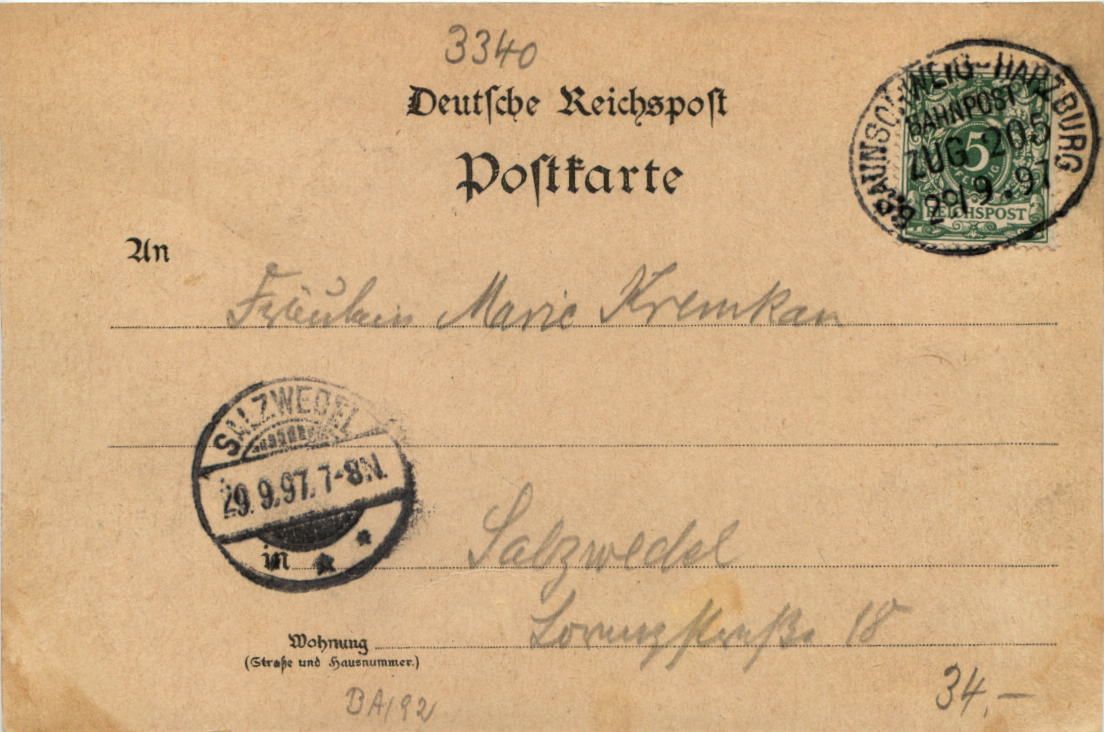 3340
Deutsche Reichspost
Postkarte
BRAUNSCHWEIG-HARZBURG
BAHNPOST
ZUG 205
29/9.97
5
PFENNIG
REICHSPOST
An
Fräulein Marie Kremkau
SALZWEDEL
29.9.97.7-8N.
in
Salzwedel
18
Wohnung
(Straße und Hausnummer.)
BA192
34,–